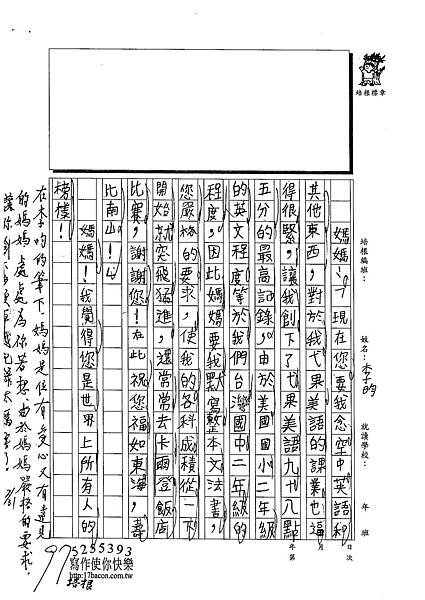 培根標章
培根編班：
姓名：李昀
就讀學校：
年 班
年 月 日
第 次
媽媽：「現在您要我念空中英語和
其他東西，對於我弋果美語的課業也逼
得很緊，讓我創下了弋果美語九十八點
五分的最高記錄，由於美國國小二年級
的英文程度等於我們台灣國中二年級的
程度，因此媽媽要我默寫整本文法書，
您嚴格的要求，使我的各科成積從一下
開始就突飛猛進，還常常去卡爾登飯店
比賽，謝謝您！在此祝您福如東海，壽
比南山！」
媽媽！我覺得您是世界上所有人的
榜樣！
在李昀的筆下，媽媽是位有愛心又有遠見
的媽媽，處處為你若想，由於媽媽嚴格的要求，
975255393
寫作使你快樂
http://17bacon.com.tw
培根